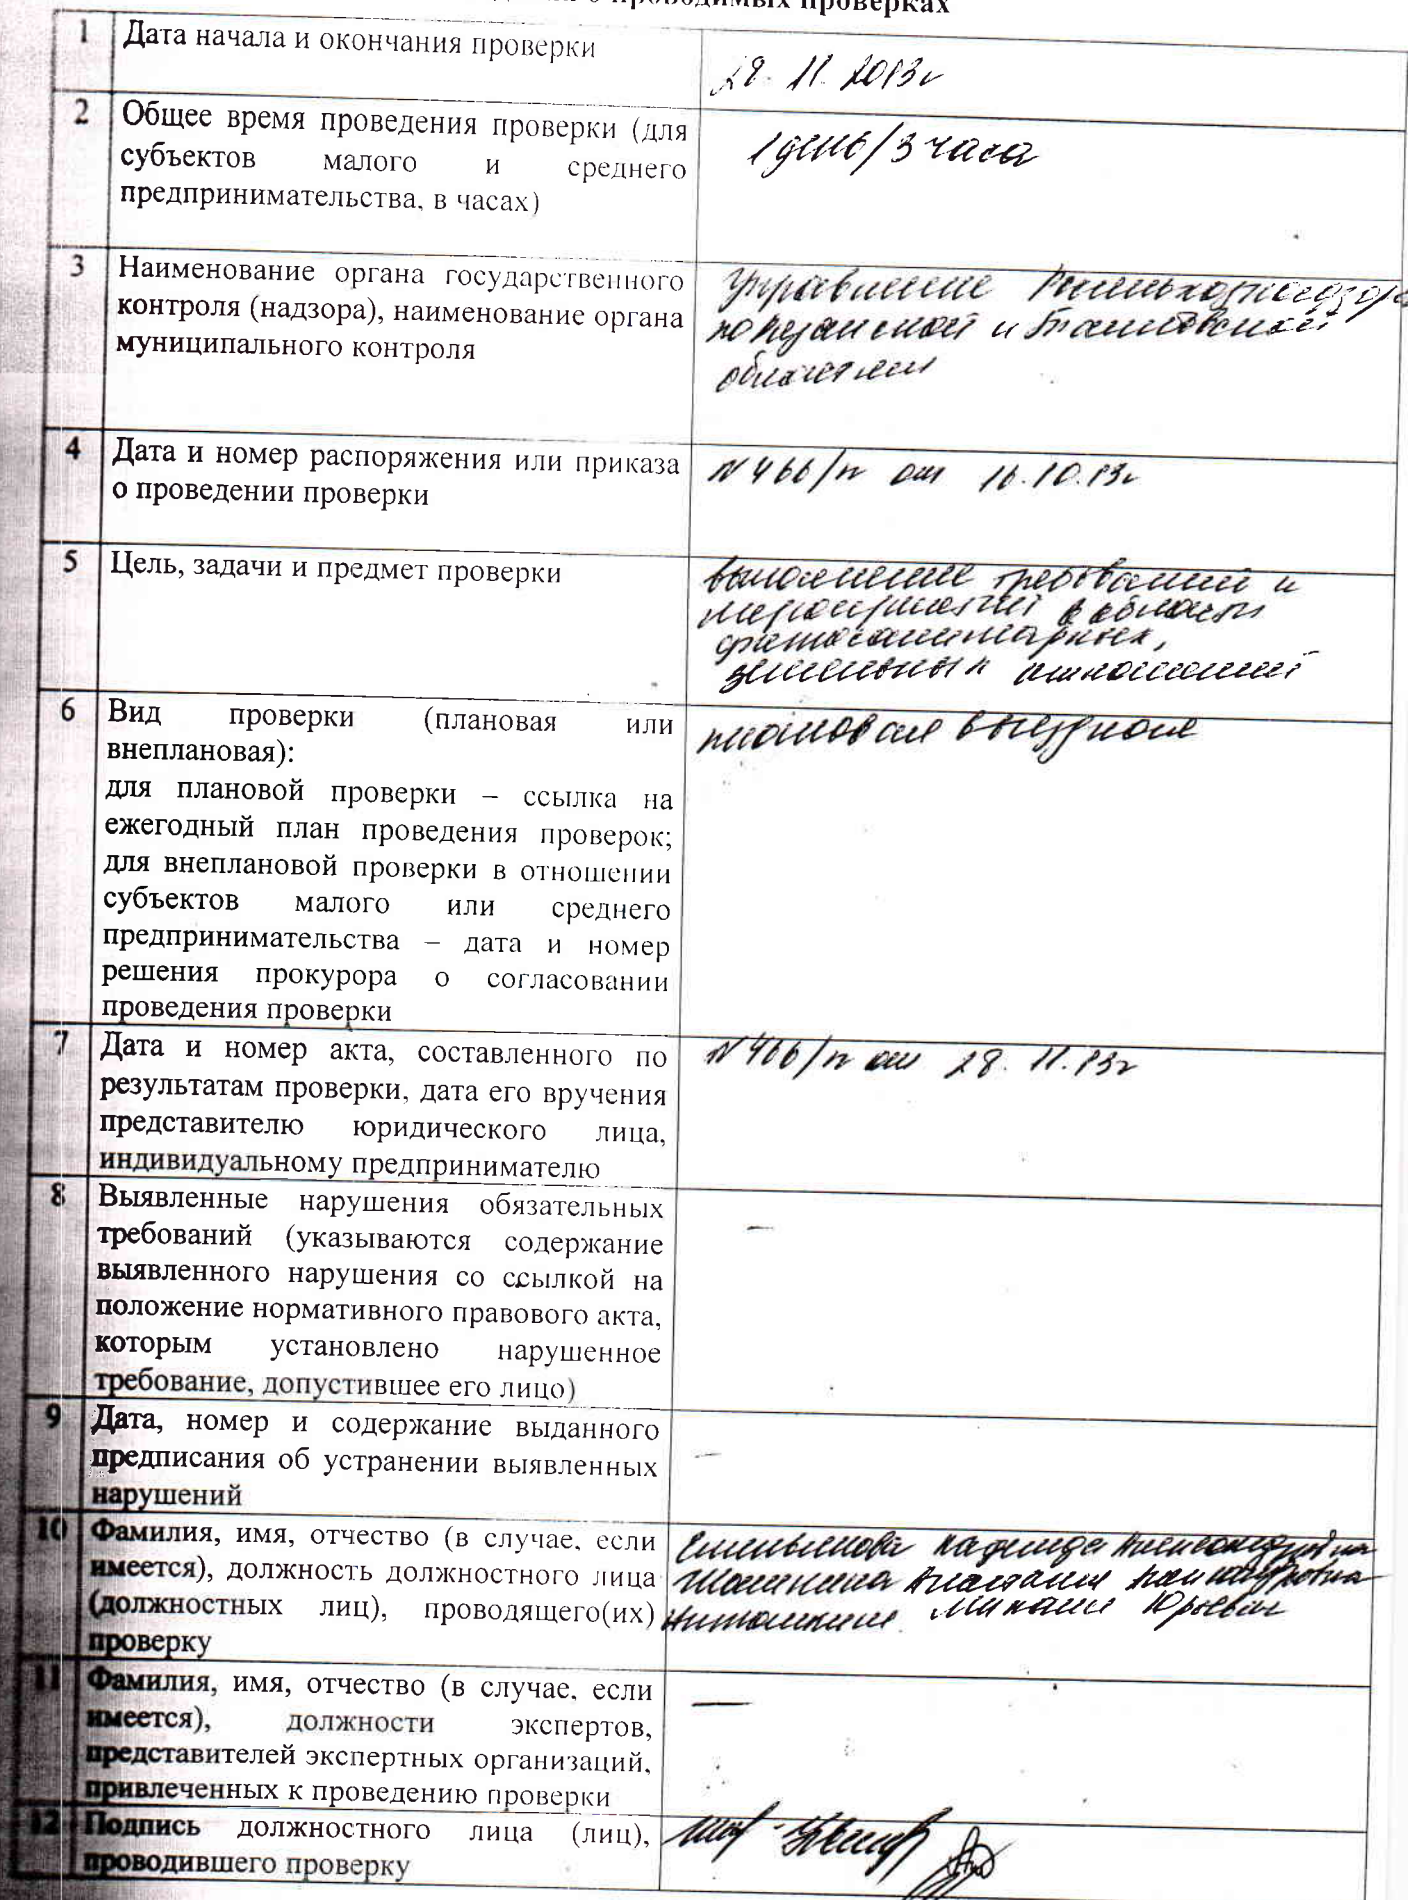 о проводимых проверках
1 Дата начала и окончания проверки
28. 11. 2013г
2 Общее время проведения проверки (для
субъектов малого и среднего
предпринимательства, в часах)
1 день/3 часа
3 Наименование органа государственного
контроля (надзора), наименование органа
муниципального контроля
Управление Россельхознадзора
по Рязанской и Тамбовской
областям
4 Дата и номер распоряжения или приказа
о проведении проверки
№ 466/п от 16.10.13г
5 Цель, задачи и предмет проверки
выполнение требований и
мероприятий в области
фитосанитарных,
земельных отношений
6 Вид проверки (плановая или
внеплановая):
для плановой проверки – ссылка на
ежегодный план проведения проверок;
для внеплановой проверки в отношении
субъектов малого или среднего
предпринимательства – дата и номер
решения прокурора о согласовании
проведения проверки
плановая выездная
7 Дата и номер акта, составленного по
результатам проверки, дата его вручения
представителю юридического лица,
индивидуальному предпринимателю
№ 466/п от 28. 11.13г
8 Выявленные нарушения обязательных
требований (указываются содержание
выявленного нарушения со ссылкой на
положение нормативного правового акта,
которым установлено нарушенное
требование, допустившее его лицо)
—
9 Дата, номер и содержание выданного
предписания об устранении выявленных
нарушений
—
10 Фамилия, имя, отчество (в случае, если
имеется), должность должностного лица
(должностных лиц), проводящего(их)
проверку
Емельянова Надежда Александровна
Анастасия
Михаил Юрьевич
11 Фамилия, имя, отчество (в случае, если
имеется), должности экспертов,
представителей экспертных организаций,
привлеченных к проведению проверки
—
12 Подпись должностного лица (лиц),
проводившего проверку